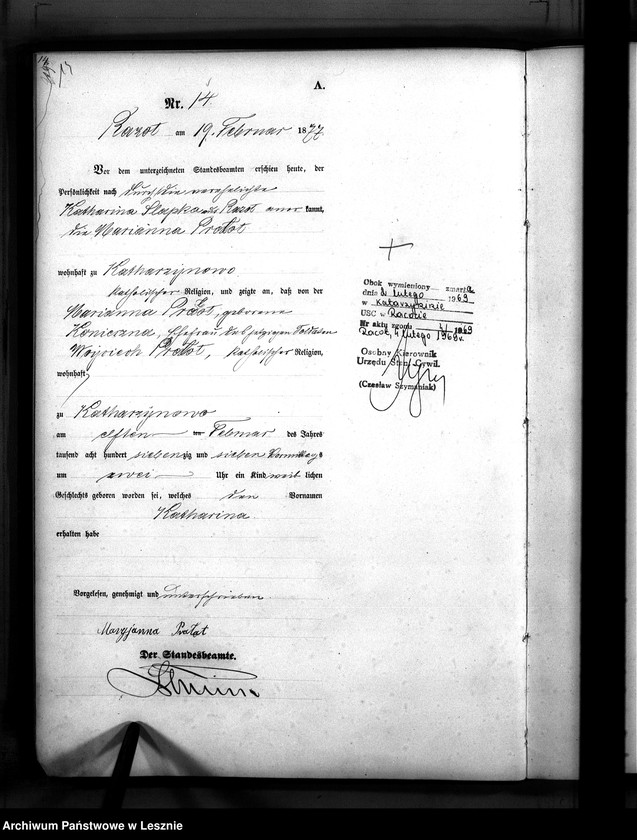 A.
Nr. 14
Razot am 19. Februar 1877.
Vor dem unterzeichneten Standesbeamten erschien heute, der
Persönlichkeit nach durch die verehelichte
Katharina Slapka aus Razot anerkannt,
die Marianna Pratat
wohnhaft zu Katharzynowo
katholischer Religion, und zeigte an, daß von der
Marianna Pratat, geborene
Konieczna, Ehefrau des
Woyciech Pratat, katholischer Religion,
wohnhaft
zu Katharzynowo
am elften Februar des Jahres
tausend acht hundert siebenzig und sieben Vormittags
um zwei Uhr ein Kind weiblichen
Geschlechts geboren worden sei, welches den Vornamen
Katharina
erhalten habe
Vorgelesen, genehmigt und unterschrieben
Maryjanna Pratat
Der Standesbeamte.
Obok wymieniony zmarła
dnia 3 lutego 1969
w Katarzyninie
USC w Racocie
Nr aktu zgonu 4/1969
Racot, 4 lutego 1969 r.
Osobny Kierownik
Urzędu Stan. Cywil.
(Czesław Szymaniak)
Archiwum Państwowe w Lesznie